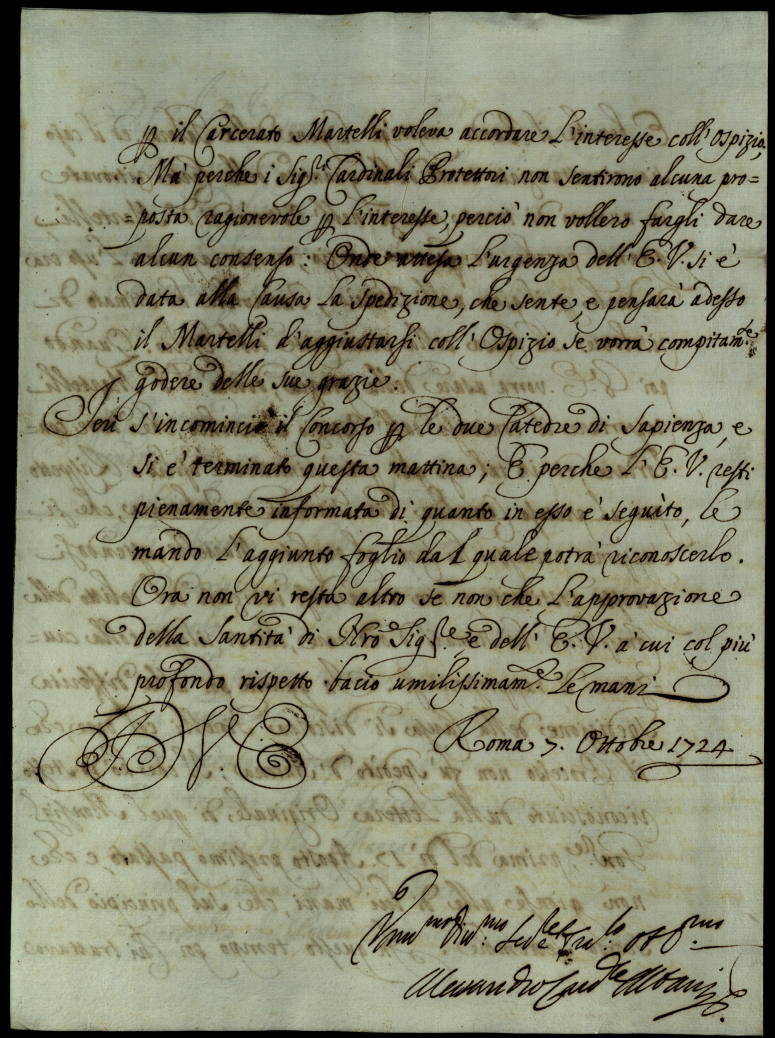 ꝑ il Carcerato Martelli voleva accordare l'interesse coll'Ospizio,
Mà perche i Sig.ri Cardinali Protettori non sentirono alcuna pro=
=posta ragionevole ꝑ l'interesse, perciò non vollero fargli dare
alcun consenso: Onde attesa l'urgenza dell'E. V. si è
data alla Causa la spedizione, che sente, e pensarà adesso
il Martelli d'aggiustarsi coll'Ospizio se vorrà compitam.te
godere delle sue grazie.
Jeri s'incominciò il Concorso ꝑ le due Catedre di Sapienza, e
si è terminato questa mattina; E perche l'E. V. resti
pienamente informata di quanto in esso è seguìto, le
mando l'aggiunto foglio dal quale potrà riconoscerlo.
Ora non vi resta altro se non che l'approvazione
della Santità di Nrõ Sig.re, e dell'E. V. à cui col più
profondo rispetto bacio umilissimam.e le mani
Roma 7. Ottobre 1724
V E
Alessandro Card.le Albani